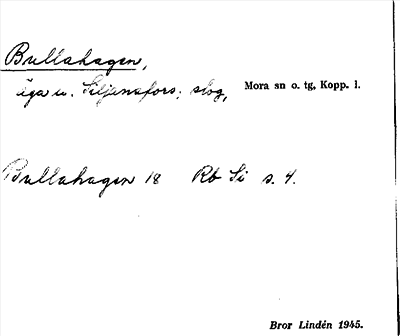 Bullahagen,
äga u. Siljansfors; skog, Mora sn o. tg, Kopp. l.
Bullahagen 18 Rb Si s. 4.
Bror Lindén 1945.